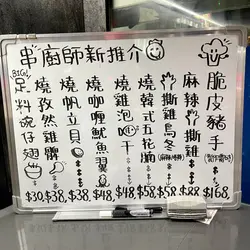 串廚師新推介
(BIG!)
足料碗仔翅 $30
燒孜然雞髀 $38
燒帆立貝 $38
燒咖喱魷魚翼 $48
燒雞泡干 $48
燒韓式五花腩 $58
撕雞烏冬 $58
麻辣撕雞 $88
脆皮豬手 (製作需時) $168